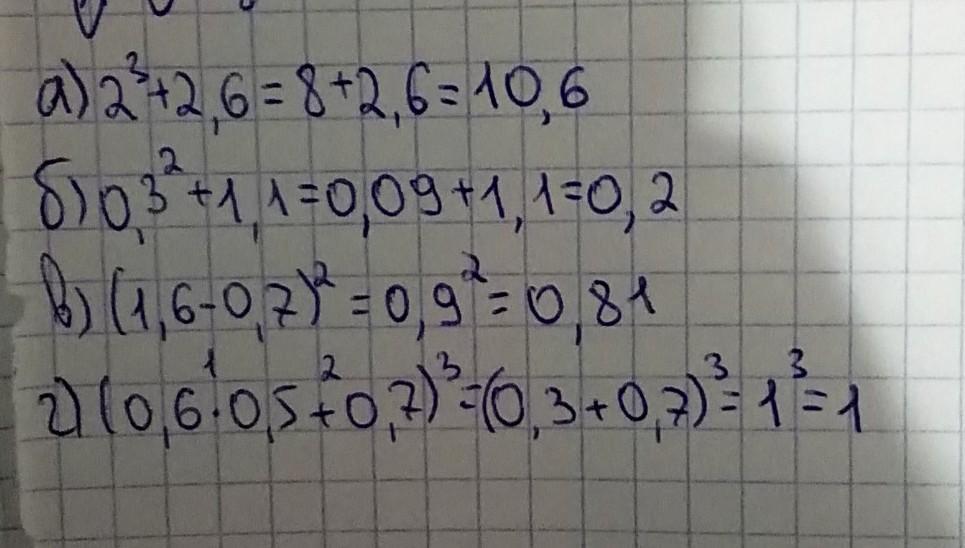 а) 2³+2,6=8+2,6=10,6
б) 0,3²+1,1=0,09+1,1=0,2
в) (1,6-0,7)²=0,9²=0,81
г) (0,6·¹0,5+²0,7)³=(0,3+0,7)³=1³=1